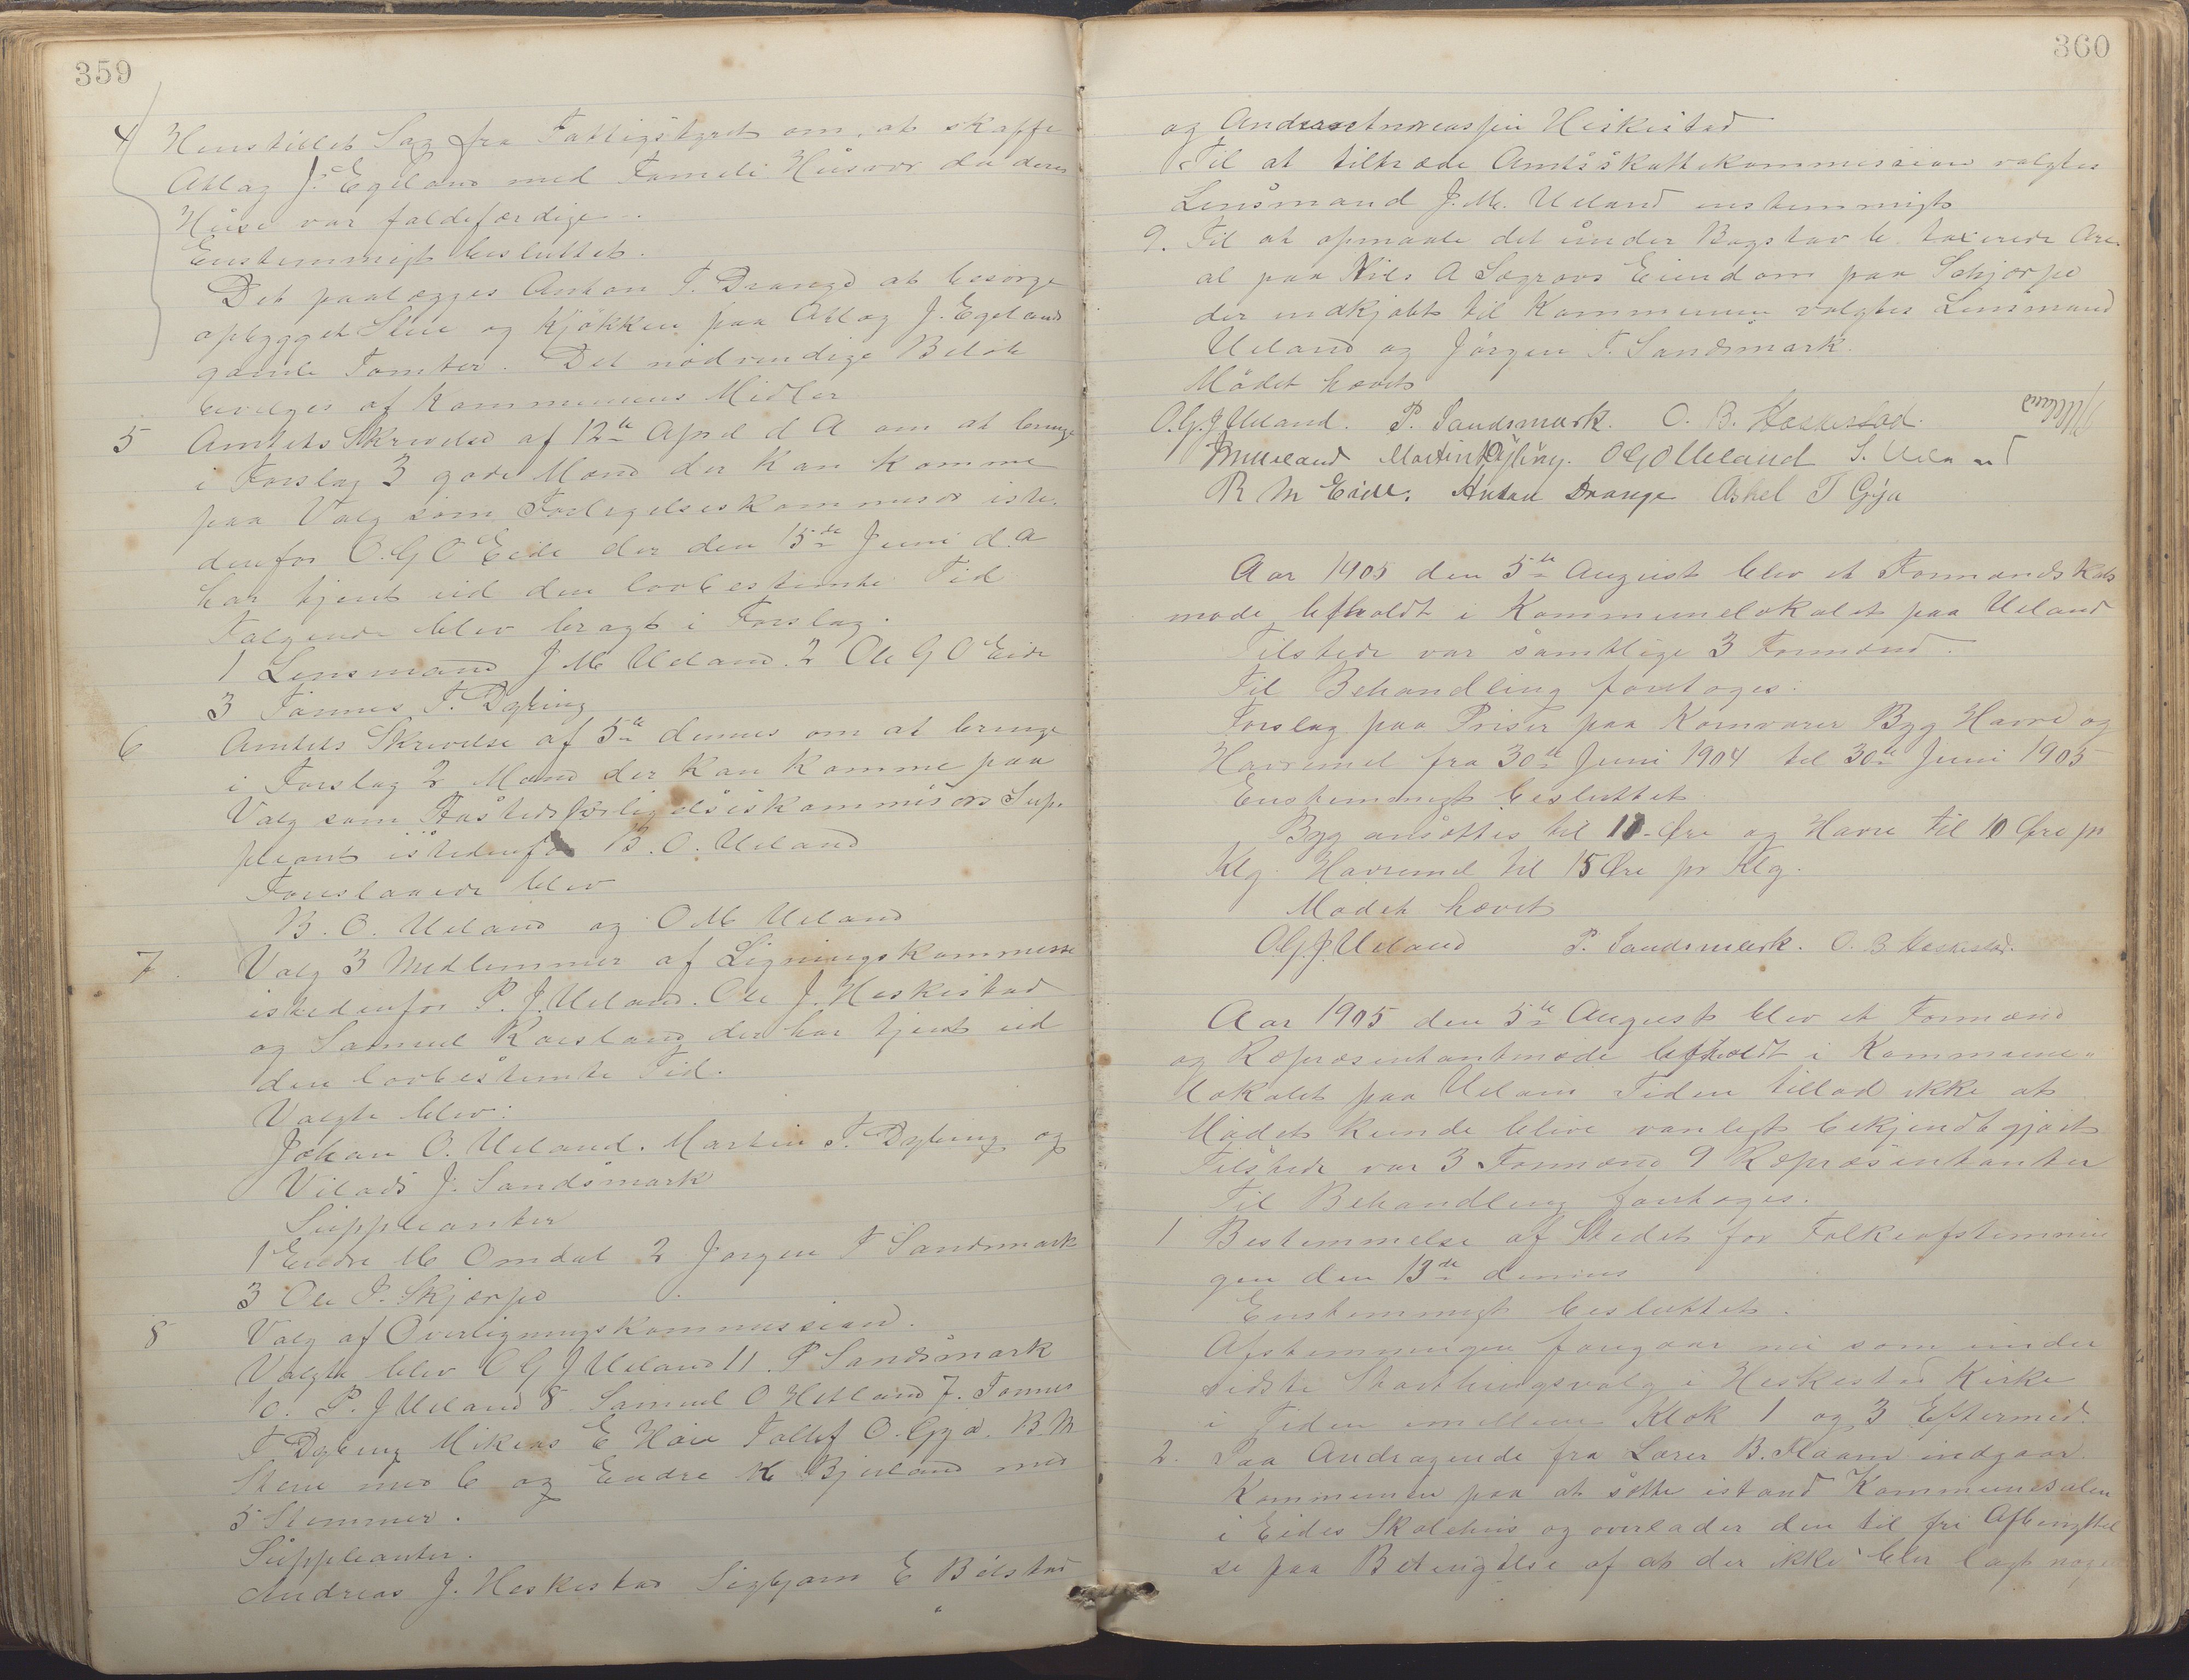 359
4 Henstillet Sag fra Fattigstyret om, at skaffe
Atlag J. Egeland med Fameli Husvær da deres
Huse var faldefærdige.
Enstemmigt besluttet.
Det paalægges Anton T. Drangs at besørge
opbygget Stue og Kjøkken paa Atlag J. Egelands
gamle Tomter. Det nødvendige Beløb
bevilges af Kommunens Midler
5 Amtets Skrivelse af 12te April d A om at bringe
i Forslag 3 gode Mænd der kan komme
paa Valg som Forligelseskommisær iste-
denfor O. G O Eide der den 15de Juni d. A
har tjent ud den lovbestemte Tid
Følgende blev bragt i Forslag.
1 Lensmand J M Ueland. 2 Ole G O Eide
3 Tønnes T. Dybing
6 Amtets Skrivelse af 5te dennes om at bringe
i Forslag 2 Mænd der kan komme paa
Valg som Forligelseskommisærs Sup-
pleant istedenfor B. O. Ueland
Foreslaaede blev
B. O. Ueland og O M Ueland
7. Valg 3 Medlemmer af Ligningskommisse
istedenfor P. J. Ueland. Ole J. Heskestad
og Samuel der har tjent ud
den lovbestemte Tid.
Valgte blev:
Johan O. Ueland. Martin T. Dybing og
Vilads J. Sandsmark
Suppleanter
1 Endre M Omdal 2 Jørgen T Sandsmark
3 Ole P. Skjærpe
8 Valg af Overligningskommission.
Valgte blev O G J Ueland 11. P Sandsmark
10. P. J Ueland 8. Samuel O Hetland 7. Tønnes
T Dybing Mikkias E Tollef O. Gya. B. M
med 6 og Endre K Bjuland med
5 Stemmer.
Suppleanter.
Andreas J. Heskestad Sigbjørn E Bilstad
360
og Heskestad
Til at tiltræde Amtsskattekommissionen valgtes
Lensmand J. M. Ueland enstemmigt
9. Til at opmaale det under Bogstav b. taxerede Are-
al paa Nils A Søgrovs Eiendom paa Schjærpe
der indkjøbt til Kommunen valgtes Lensmand
Ueland og Jørgen T. Sandsmark.
Mødet hævet
O. G. J Ueland. P. Sandsmark. O. B. Heskestad. Ueland
J M Ueland Martin Dybing. O G O Ueland S. Ueland
R M Eide. Anton Drange Askel T Gýa
Aar 1905 den 5te August blev et Formandskabs
møde afholdt i Kommunelokalet paa Ueland
Tilstede var samtlige 3 Formænd.
Til Behandling foretoges:
Forslag paa Priser paa Kornvarer Byg Havre og
Havremel fra 30te Juni 1904 til 30te Juni 1905
Enstemmigt besluttet
Byg ansættes til 11 Øre og Havre til 10 Øre pr
Klg. Havremel til 15 Øre pr Klg.
Mødet hævet
O. G. J. Ueland P. Sandsmark. O. B Heskestad.
Aar 1905 den 5te August blev et Formænd
og Repræsentantmøde afholdt i Kommune-
lokalet paa Ueland Tiden tillod ikke at
Mødet kunde blive vanligt bekjendtgjort
Tilstede var 3 Formænd 9 Repræsentanter
Til Behandling foretoges.
1 Bestemmelse af Stedet for Folkeafstemnin
gen den 13de dennes
Enstemmigt besluttet.
Afstemningen foregaar nu som under
sidste Storthingsvalg i Heskestad Kirke
i Tiden imellem Klok 1 og 3 Eftermid.
2. Paa Andragende fra Lærer B. Flaam indgaar
Kommunen paa at sætte istand Kommunesalen
i Eides Skolehus og overlader den til fri Afbenyttel
se paa Betingelse af at der ikke blir lagt noge